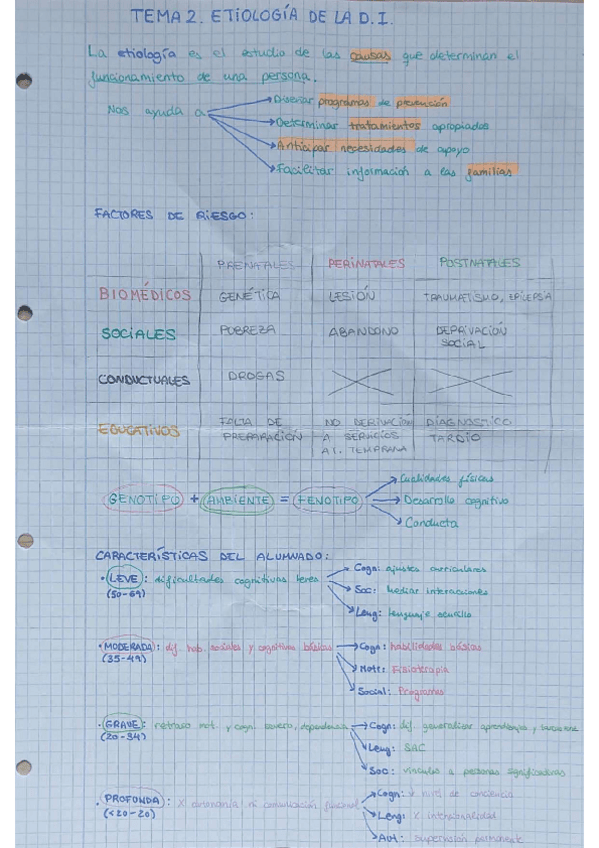 TEMA 2. ETIOLOGÍA DE LA D.I.
La etiología es el estudio de las causas que determinan el
funcionamiento de una persona.
Nos ayuda a
Diseñar programas de prevención
Determinar tratamientos apropiados
Anticipar necesidades de apoyo
Facilitar información a las familias
FACTORES DE RIESGO:
PRENATALES PERINATALES POSTNATALES
BIOMÉDICOS GENÉTICA LESIÓN TRAUMATISMO, EPILEPSIA
SOCIALES POBREZA ABANDONO DEPRIVACIÓN
SOCIAL
CONDUCTUALES DROGAS
EDUCATIVOS FALTA DE NO DERIVACIÓN DIAGNOSTICO
PREPARACIÓN A SERVICIOS TARDÍO
AT. TEMPRANA
GENOTIPO + AMBIENTE = FENOTIPO
Cualidades físicas
Desarrollo cognitivo
Conducta
CARACTERÍSTICAS DEL ALUMNADO:
· LEVE: dificultades cognitivas leves
(50-69)
Cogn: ajustes curriculares
Soc: Mediar interacciones
Leng: lenguaje sencillo
· MODERADA: dif. hab. sociales y cognitivas básicas
(35-49)
Cogn: habilidades básicas
Mott: Fisioterapia
Social: Programas
· GRAVE: retraso mot. y cogn. severo, dependencia
(20-34)
Cogn: dif. generalizar aprendizajes y
Leng: SAC
Soc: vínculos a personas significativas
· PROFUNDA: X autonomía ni comunicación funcional
(<20-20)
Cogn: ↓ nivel de conciencia
Leng: X intencionalidad
Aut: supervisión permanente